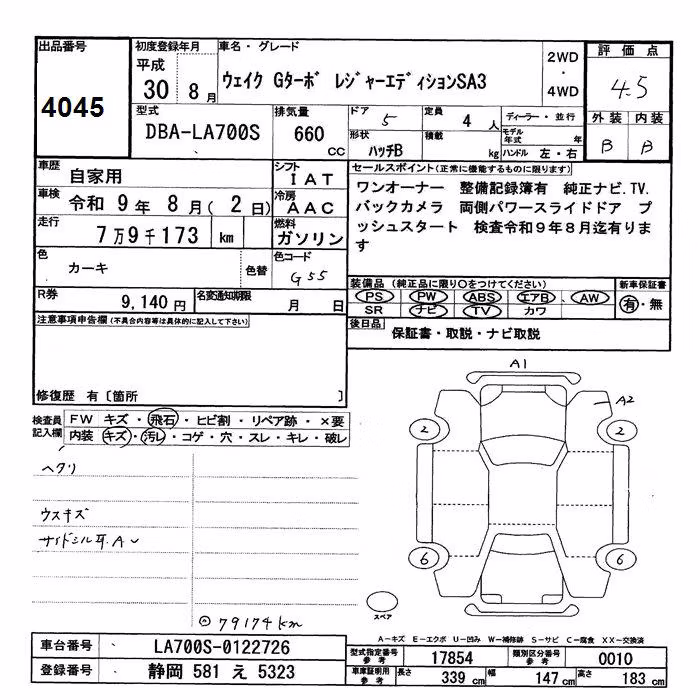 出品番号
4045
初度登録年月
平成
30 8 月
車名・グレード
ウェイク Gターボ レジャーエディションSA3
2WD
・
4WD
評価点
4.5
外装 内装
B B
型式
DBA-LA700S
排気量
660 CC
ドア 5
定員 4 人
ディーラー・並行
形状
ハッチB
積載 kg
モデル年式 年
ハンドル 左・右
車歴
自家用
シフト
IAT
車検
令和 9年 8月( 2日)
冷房
AAC
走行
7万9千173 km
燃料
ガソリン
色
カーキ
色替
色コード
G55
R券
9,140円
名変通知期限 月 日
セールスポイント(正常に機能するものに限ります)
ワンオーナー 整備記録簿有 純正ナビ.TV.
バックカメラ 両側パワースライドドア プ
ッシュスタート 検査令和9年8月迄有りま
す
装備品 (純正品に限り○をつけてください)
新車保証書
PS PW ABS エアB AW
SR ナビ TV カワ
有・無
後日品
保証書・取説・ナビ取説
注意事項申告欄(不具合内容等は具体的に記入して下さい)
修復歴 有〔箇所 〕
検査員
記入欄
FW キズ・飛石・ヒビ割・リペア跡・×要
内装 キズ・汚レ・コゲ・穴・スレ・キレ・破レ
ヘタリ
ウスキズ
サイドシル耳.A
79174km
A1
A2
2 2
6 6
スペア
A−キズ E−エクボ U−凹み W−補修跡 S−サビ C−腐食 XX−交換済
車台番号
LA700S-0122726
登録番号
静岡 581 え 5323
型式指定番号
参考
17854
類別区分番号
参考
0010
車庫証明用
参考
長さ 339 cm
幅 147 cm
高さ 183 cm